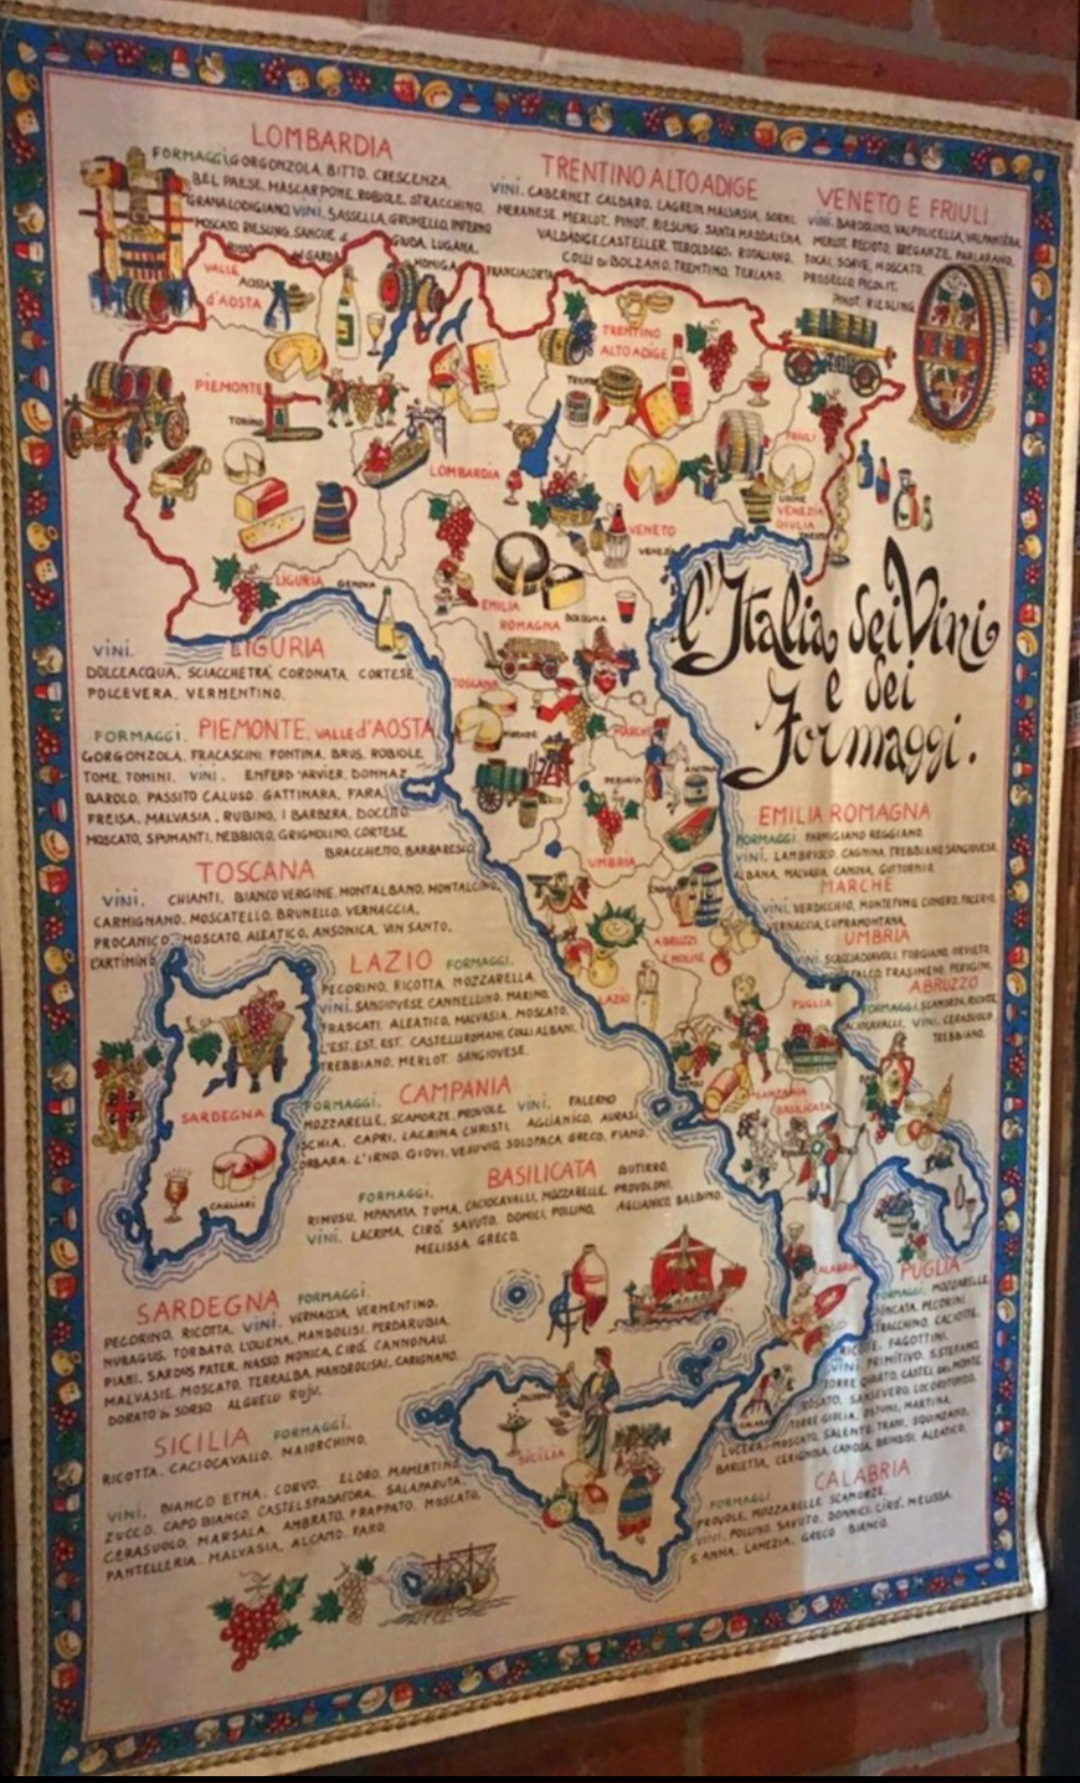 LOMBARDIA
FORMAGGI. GORGONZOLA, BITTO, CRESCENZA,
BEL PAESE, MASCARPONE, ROBIOLE, STRACCHINO,
GRANA LODIGIANO VINI. SASSELLA, GRUMELLO, INFERNO
MOSCATO, RIESLING, SANGUE di GIUDA, LUGANA,
FRANCIACORTA
TRENTINO ALTO ADIGE
VINI. CABERNET, CALDARO, LAGREIN, MALVASIA, SORNI,
MERANESE, MERLOT, PINOT, RIESLING, SANTA MADDALENA,
VALDADIGE, CASTELLER, TEROLDEGO, ROTALIANO,
COLLI di BOLZANO, TRENTINO, TERLANO.
VENETO E FRIULI
VINI. BARDOLINO, VALPOLICELLA, VALPANTENA,
MERLOT, RECIOTO, BREGANZE,
TOCAI, SOAVE, MOSCATO,
PROSECCO, PICOLIT,
PINOT, RIESLING
VALLE
d'AOSTA
AOSTA
TRENTINO
ALTO ADIGE
PIEMONTE
TORINO
LOMBARDIA
FRIULI
UDINE
VENEZIA
GIULIA
VENETO
LIGURIA
GENOVA
EMILIA
ROMAGNA
BOLOGNA
l'Italia dei Vini
e dei
Formaggi.
LIGURIA
VINI.
DOLCEACQUA, SCIACCHETRÀ, CORONATA, CORTESE
POLCEVERA, VERMENTINO.
TOSCANA
MARCHE
PERUGIA
ANCONA
UMBRIA
FORMAGGI. PIEMONTE, VALLE d'AOSTA
GORGONZOLA, FRACASCINI, FONTINA, BRUS, ROBIOLE
TOME, TOMINI. VINI. ENFERD'ARVIER, DONNAZ
BAROLO, PASSITO CALUSO, GATTINARA, FARA,
FREISA, MALVASIA, RUBINO, I BARBERA, DOLCETTO
MOSCATO, SPUMANTI, NEBBIOLO, GRIGNOLINO, CORTESE,
BRACCHETTO, BARBARESCO
EMILIA ROMAGNA
FORMAGGI. PARMIGIANO REGGIANO.
VINI. LAMBRUSCO, CAGNINA, TREBBIANO, SANGIOVESE,
ALBANA, MALVASIA, CANINA, GUTTURNIO.
TOSCANA
VINI. CHIANTI, BIANCO VERGINE, MONTALBANO, MONTALCINO,
CARMIGNANO, MOSCATELLO, BRUNELLO, VERNACCIA,
PROCANICO, MOSCATO, ALEATICO, ANSONICA, VIN SANTO.
CARTIMINO
MARCHE
VINI. VERDICCHIO, MONTEPULC. CONERO,
VERNACCIA, CUPRAMONTANA,
UMBRIA
VINI. SCACCIADIAVOLI, TORGIANO, ORVIETO,
TRASIMENO, PERUGINI,
ABRUZZO
FORMAGGI. SCAMORZA, RICOTTE,
CACIOCAVALLI, VINI. CERASUOLO
TREBBIANO.
ABRUZZI
E MOLISE
LAZIO
PUGLIA
LAZIO FORMAGGI.
PECORINO, RICOTTA, MOZZARELLA
VINI. SANGIOVESE, CANNELLINO, MARINO,
FRASCATI, ALEATICO, MALVASIA, MOSCATO,
L'EST, EST, EST, CASTELLI ROMANI, COLLI ALBANI,
TREBBIANO, MERLOT, SANGIOVESE.
SARDEGNA
CAGLIARI
CAMPANIA
BASILICATA
FORMAGGI. CAMPANIA
MOZZARELLE, SCAMORZE, PROVOLE, VINI. FALERNO
ISCHIA, CAPRI, LACRIMA CHRISTI, AGLIANICO,
L'IRNO, GIOVI, VESUVIO, SOLOPACA, GRECO, FIANO.
BASILICATA BUTIRRO,
FORMAGGI.
RIMUSU, MPANATA, TUMA, CACIOCAVALLI, MOZZARELLE, PROVOLONI,
VINI. LACRIMA, CIRÒ, SAVUTO, DONICI, POLLINO, AGLIANICO, BALBINO,
MELISSA, GRECO.
CALABRIA
PUGLIA
FORMAGGI. MOZZARELLE,
PECORINI
STRACCHINO, CACIOTTE,
FAGOTTINI,
VINI PRIMITIVO, S.STEFANO,
TORRE QUARTO, CASTEL DEL MONTE,
ROSATO, SANSEVERO, LOCOROTONDO,
TORRE GIULIA, OSTUNI, MARTINA,
LUCERA, MOSCATO, SALENTO, TRANI, SQUINZANO,
BARLETTA, CERIGNOLA, CANOSA, BRINDISI, ALEATICO.
SARDEGNA FORMAGGI.
PECORINO, RICOTTA, VINI. VERNACCIA, VERMENTINO,
NURAGUS, TORBATO, L'OLIENA, MANDOLISI, PERDARUBIA,
PIANI, SARDUS PATER, NASCO, MONICA, CIRÒ, CANNONAU,
MALVASIE, MOSCATO, TERRALBA, MANDROLISAI, CARIGNANO,
DORATO di SORSO ALGHELU RUJU.
SICILIA
SICILIA FORMAGGI.
RICOTTA, CACIOCAVALLO, MAIORCHINO.
VINI. BIANCO ETNA, CORVO, ELORO, MAMERTINO
ZUCCO, CAPO BIANCO, CASTELSPADAFORA, SALAPARUTA,
CERASUOLO, MARSALA, AMBRATO, FRAPPATO, MOSCATO,
PANTELLERIA, MALVASIA, ALCAMO, FARO.
CALABRIA
FORMAGGI
PROVOLE, MOZZARELLE, SCAMORZE,
VINI. POLLINO, SAVUTO, DONNICI, CIRÒ, MELISSA,
S ANNA, LAMEZIA, GRECO BIANCO.